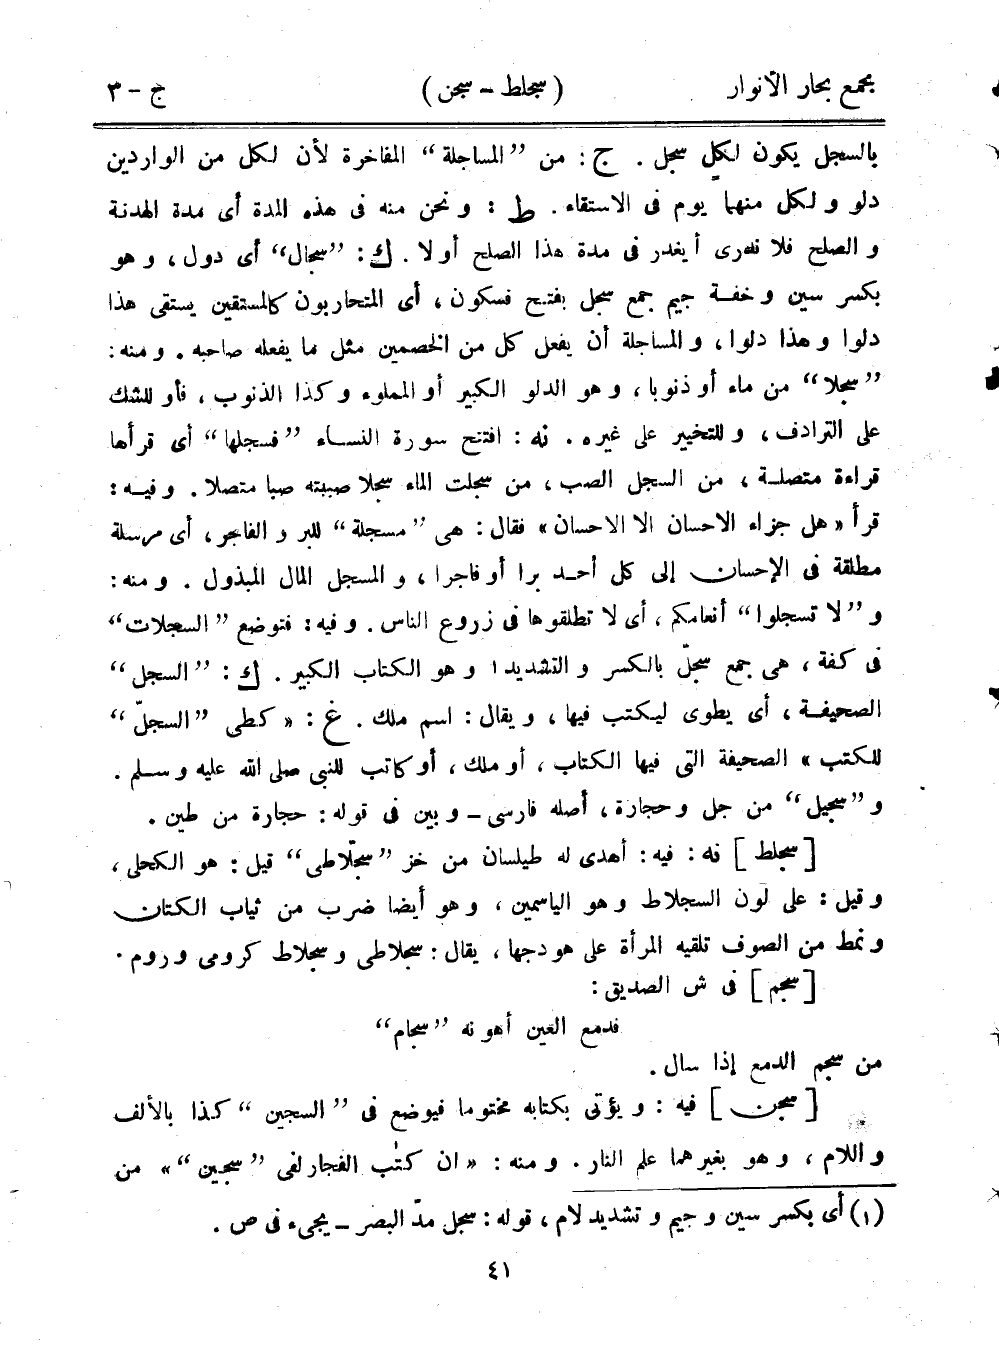 مجمع بحار الأنوار
( سجلط – سجن )
ج – ٣
بالسجل يكون لكلٍ سجل . ج : من ”المساجلة“ المفاخرة لأن لكل من الواردين
دلو و لكل منهما يوم فى الاستقاء . ط : و نحن منه فى هذه المدة أى مدة الهدنة
و الصلح فلا ندرى أ يغدر فى مدة هذا الصلح أو لا . ك : ”سجال“ أى دول ، و هو
بكسر سين و خفة جيم جمع سجل بفتح فسكون ، أى المتحاربون كالمستقين يستقى هذا
دلوا و هذا دلوا ، و المساجلة أن يفعل كل من الخصمين مثل ما يفعله صاحبه . و منه :
”سجلا“ من ماء أو ذنوبا ، و هو الدلو الكبير أو المملوء و كذا الذنوب ، فأو للشك
على الترادف ، و للتخيير على غيره . نه : افتتح سورة النساء ”فسجلها“ أى قرأها
قراءة متصلة ، من السجل الصب ، من سجلت الماء سجلا صببته صبا متصلا . و فيه :
قرأ « هل جزاء الاحسان الا الاحسان » فقال : هى ”مسجلة“ للبر و الفاجر ، أى مرسلة
مطلقة فى الإحسان إلى كل أحد برا أو فاجرا ، و المسجل المال المبذول . و منه :
و ”لا تسجلوا“ أنعامكم ، أى لا تطلقوها فى زروع الناس . و فيه : فتوضع ”السجلات“
فى كفة ، هى جمع سجلّ بالكسر و التشديد١ و هو الكتاب الكبير . ك : ”السجل“
الصحيفة ، أى يطوى ليكتب فيها ، و يقال : اسم ملك . غ : « كطى ”السجلّ“
للكتب » الصحيفة التى فيها الكتاب ، أو ملك ، أو كاتب للنبى صلى الله عليه و سلم .
و ”سجيل“ من جل و حجارة ، أصله فارسى – و بين فى قوله : حجارة من طين .
[ سجلط ] نه : فيه : أهدى له طيلسان من خز ”سجلّاطى“ قيل : هو الكحلى ،
و قيل : على لون السجلاط و هو الياسمين ، و هو أيضا ضرب من ثياب الكتان
و نمط من الصوف تلقيه المرأة على هودجها ، يقال : سجلاطى و سجلاط كرومى و روم .
[ سجم ] فى ش الصديق :
فدمع العين أهونه ”سجام“
من سجم الدمع إذا سال .
[ سجن ] فيه : و يؤتى بكتابه مختوما فيوضع فى ”السجين“ كذا بالألف
و اللام ، و هو بغيرهما علم النار . و منه : « ان كتٰب الفجار لفى ”سجين“ » من
(١) أى بكسر سين و جيم و تشديد لام ، قوله : سجل مدّ البصر – يجىء فى ص .
٤١